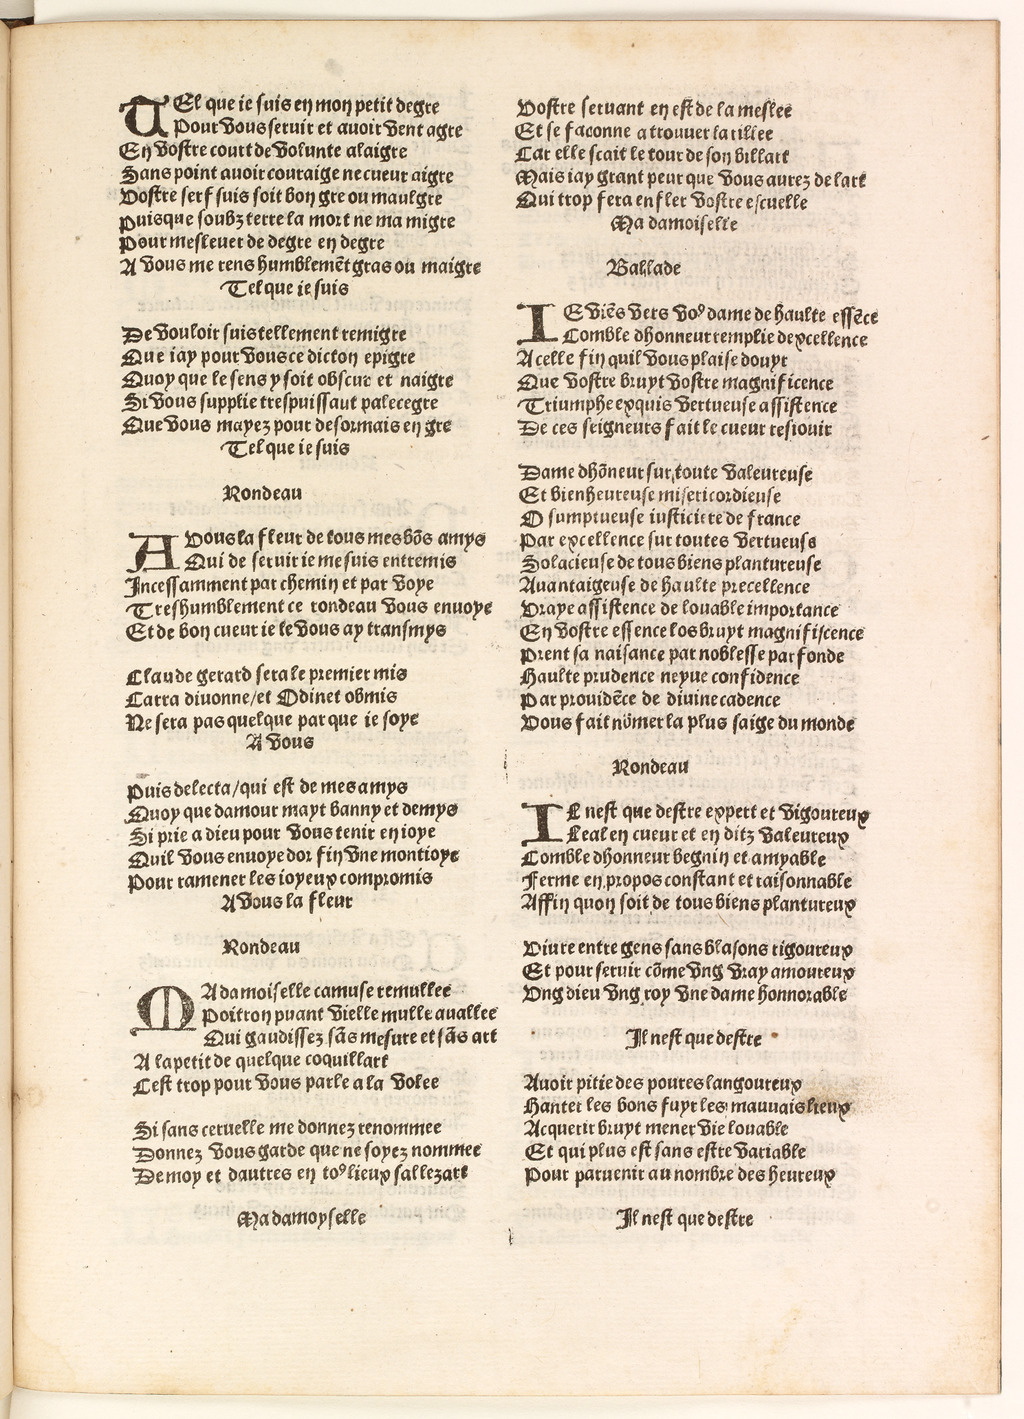 TEl que ie suis en mon petit degre
Pour vous seruir et auoir vent agre
En vostre court de volunte alaigre
Sans point auoir couraige ne cueur aigre
Vostre serf suis soit bon gre ou maulgre
Puisque soubz terre la mort ne ma migre
Pour mesleuer de degre en degre
A vous me rens humblemēt gras ou maigre
Tel que ie suis
De vouloir suis tellement remigre
Que iay pour vous ce dicton epigre
Quoy que le sens y soit obscur et naigre
Si vous supplie trespuissaut palecegre
Que vous mayez pour desormais en gre
Tel que ie suis
Rondeau
A Vous la fleur de tous mes bōs amys
Qui de seruir ie me suis entremis
Incessamment par chemin et par voye
Treshumblement ce rondeau vous enuoye
Et de bon cueur ie le vous ay transmys
Claude gerard sera le premier mis
Carra diuonne/et Odinet obmis
Ne sera pas quelque part que ie soye
A vous
Puis delecta/qui est de mes amys
Quoy que damour mayt banny et demys
Si prie a dieu pour vous tenir en ioye
Quil vous enuoye dor fin vne montioye
Pour ramener les ioyeux compromis
A vous la fleur
Rondeau
MAdamoiselle camuse remullee
Poitron puant vielle mulle auallee
Qui gaudissez sās mesure et sās art
A lapetit de quelque coquillart
Cest trop pour vous parle a la volee
Si sans ceruelle me donnez renommee
Donnez vous garde que ne soyez nommee
De moy et dautres en toꝰ lieux sallezart
Madamoyselle
Vostre seruant en est de la meslee
Et se faconne a trouuer la tillee
Car elle scait le tour de son billart
Mais iay grant peur que vous aurez de lart
Qui trop fera enfler vostre escuelle
Madamoiselle
Ballade
IE viēs vers voꝰ dame de haulte essēce
Comble dhonneur remplie dexcellence
A celle fin quil vous plaise douyr
Que vostre bruyt vostre magnificence
Triumphe exquis vertueuse assistence
De ces seigneurs fait le cueur resiouir
Dame dhōneur sur toute valeureuse
Et bienheureuse misericordieuse
O sumptueuse iusticiere de france
Par excellence sur toutes vertueuse
Solacieuse de tous biens plantureuse
Auantaigeuse de haulte precellence
Vraye assistence de louable importance
En vostre essence los bruyt magnifiscence
Prent sa naisance par noblesse parfonde
Haulte prudence neyue confidence
Par prouidēce de diuine cadence
Vous fait nōmer la plus saige du monde
Rondeau
IL nest que destre expert et vigoureux
Leal en cueur et en ditz valeureux
Comble dhonneur begnin et amyable
Ferme en propos constant et raisonnable
Affin quon soit de tous biens plantureux
Viure entre gens sans blasons rigoureux
Et pour seruir cōme vng vray amoureux
Vng dieu vng roy vne dame honnorable
Il nest que destre
Auoir pitie des poures langoureux
Hanter les bons fuyr les mauuais lieux
Acquerir bruyt mener vie louable
Et qui plus est sans estre variable
Pour paruenir au nombre des heureux
Il nest que destre